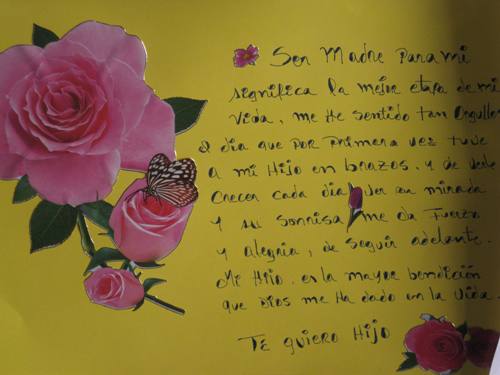 Ser Madre para mi
significa la mejor etapa de mi
vida, me He sentido tan orgullo
el dia que por primera vez tuve
a mi Hijo en brazos. y de verle
crecer cada dia, ver su mirada
y su sonrisa me da Fuerza
y Alegria, de seguir adelante.
Mi Hijo. es la mayor bendición
que Dios me Ha dado en la vida.
TE quiero Hijo